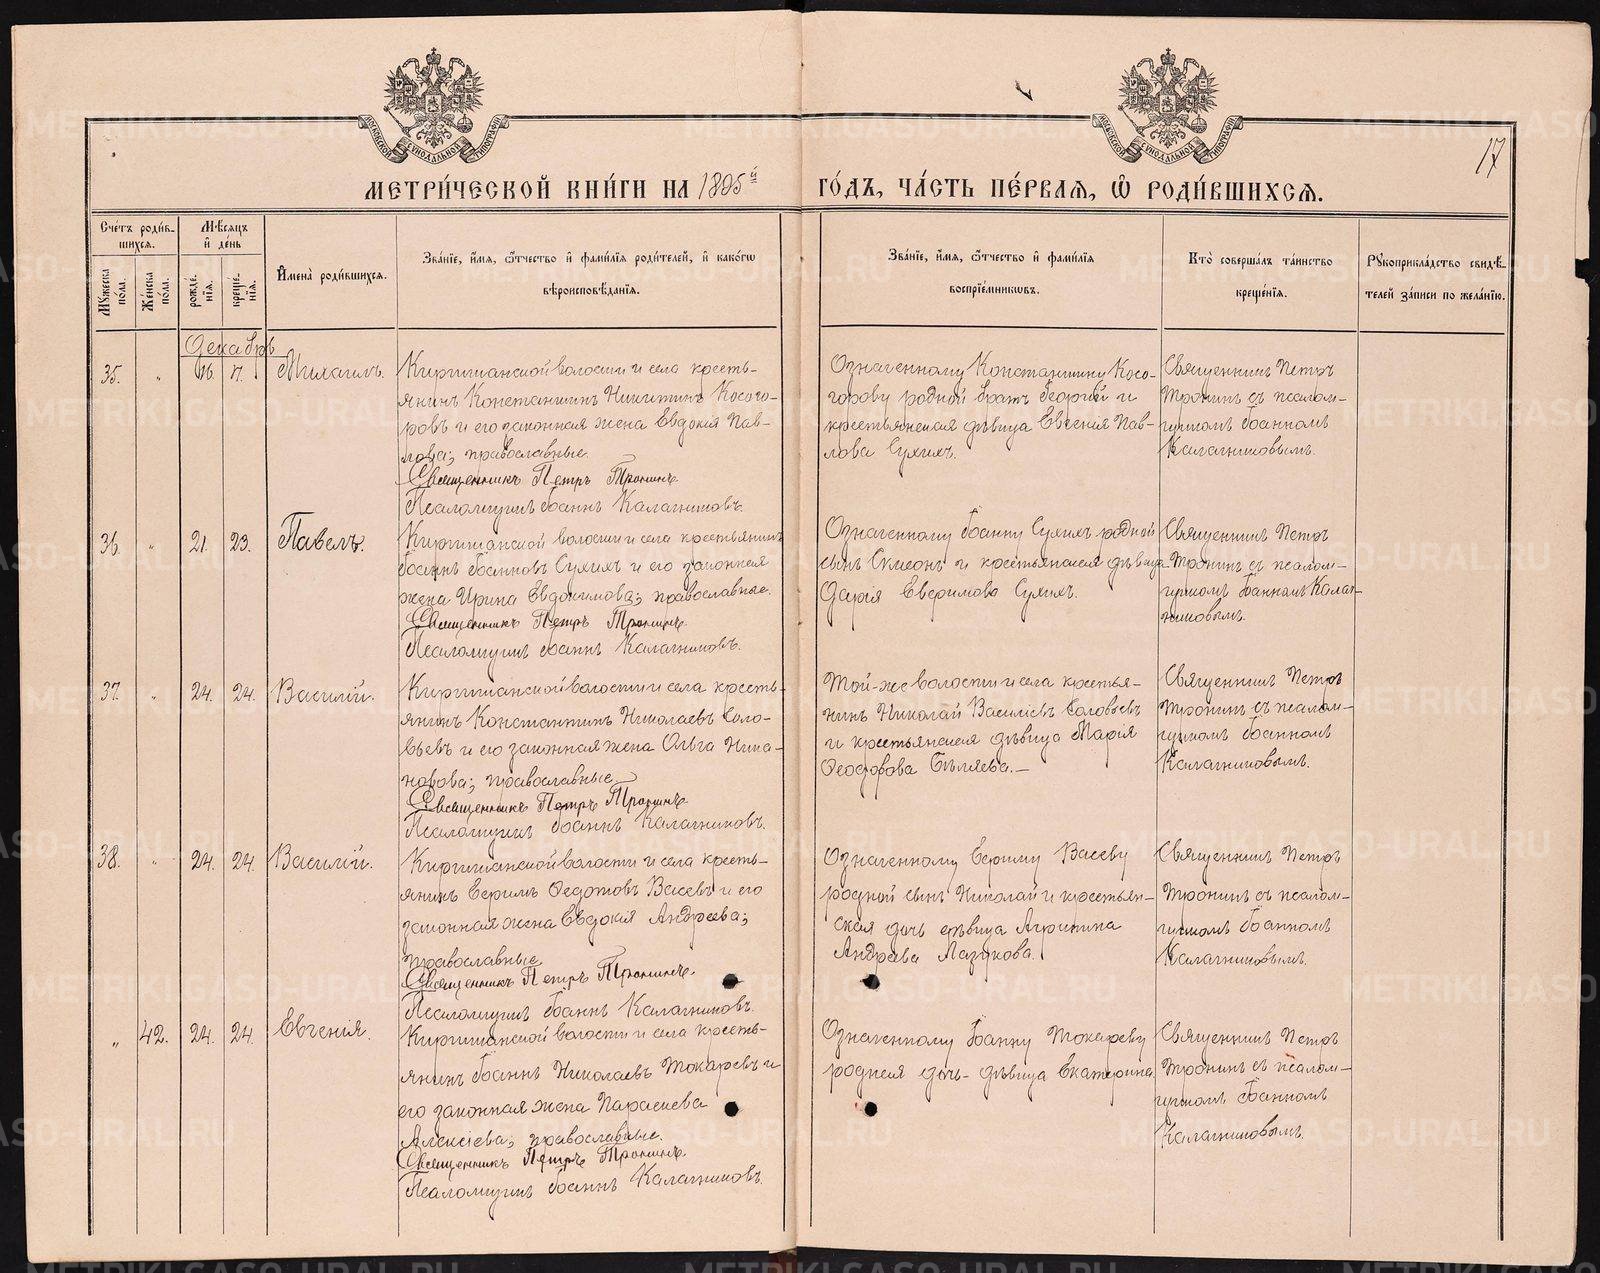 МЕТРИ́ЧЕСКОЙ КНИ́ГИ НА 1895ый ГО́ДЪ, ЧА́СТЬ ПЕ́РВАѦ, Ѽ РОДИ́ВШИХСѦ.
17
Сче́тъ роди́в-
шихсѧ.
Мѣ́сѧцъ
и҆ де́нь
Мꙋ́жеска
по́ла.
Же́нска
по́ла.
рожде́-
нїѧ.
креще́-
нїѧ.
И҆мена̀ роди́вшихсѧ.
Зва́нїе, и҆́мѧ, ѻ҆́тчество и҆ фамі́лїѧ роди́телей, и҆ како́гѡ
вѣроисповѣ́данїѧ.
Зва́нїе, и҆́мѧ, ѻ҆́тчество и҆ фамі́лїѧ
воспрїе́мникѡвъ.
Кто̀ соверша́лъ та́инство
креще́нїѧ.
Рꙋкоприкла́дство свидѣ́-
телей за́писи по жела́нїю.
Декабрь
35. " 16. 17. Михаилъ.
Киргишанской волости и села кресть-
янинъ Константинъ Никитинъ Косого-
ровъ и его законная жена Евдокія Пав-
лова; православные.
Священникъ Петръ Тронинъ.
Псаломщикъ Іоаннъ Калачниковъ.
Означенному Константину Косо-
горову родной братъ Георгій и
крестьянская дѣвица Евгенія Пав-
лова Сухихъ.
Священникъ Петръ
Тронинъ съ псалом-
щикомъ Іоанномъ
Калачниковымъ.
36. " 21. 23. Павелъ.
Киргишанской волости и села крестьянинъ
Іоаннъ Іоанновъ Сухихъ и его законная
жена Ирина Евдокимова; православные.
Священникъ Петръ Тронинъ.
Псаломщикъ Іоаннъ Калачниковъ.
Означенному Іоанну Сухихъ родной
сынъ Симеонъ и крестьянская дѣвица
Дарія Евфимова Сухихъ.
Священникъ Петръ
Тронинъ съ псалом-
щикомъ Іоанномъ Калач-
никовымъ.
37. " 24. 24. Василій.
Киргишанской волости и села кресть-
янинъ Константинъ Николаевъ Соло-
вьевъ и его законная жена Ольга Ника-
норова; православные.
Священникъ Петръ Тронинъ.
Псаломщикъ Іоаннъ Калачниковъ.
Той-же волости и села крестья-
нинъ Николай Василіевъ Соловьевъ
и крестьянская дѣвица Марія
Феодорова Бѣляева.—
Священникъ Петръ
Тронинъ съ псалом-
щикомъ Іоанномъ
Калачниковымъ.
38. " 24. 24. Василій.
Киргишанской волости и села кресть-
янинъ Ефримъ Федотовъ Васевъ и его
законная жена Евдокія Андреева;
православные.
Священникъ Петръ Тронинъ.
Псаломщикъ Іоаннъ Калачниковъ.
Означенному Ефриму Васеву
родной сынъ Николай и крестьян-
ская дочь дѣвица Агрипина
Андрева
Священникъ Петръ
Тронинъ съ псалом-
щикомъ Іоанномъ
Калачниковымъ.
" 42. 24. 24. Евгенія.
Киргишанской волости и села кресть-
янинъ Іоаннъ Николаевъ Токаревъ и
его законная жена Параскева
Алексіева; православные.
Священникъ Петръ Тронинъ.
Псаломщикъ Іоаннъ Калачниковъ.
Означенному Іоанну Токареву
родная дочь- дѣвица Екатерина.
Священникъ Петръ
Тронинъ съ псалом-
щикомъ Іоанномъ
Калачниковымъ.
METRIKI.GASO-URAL.RU